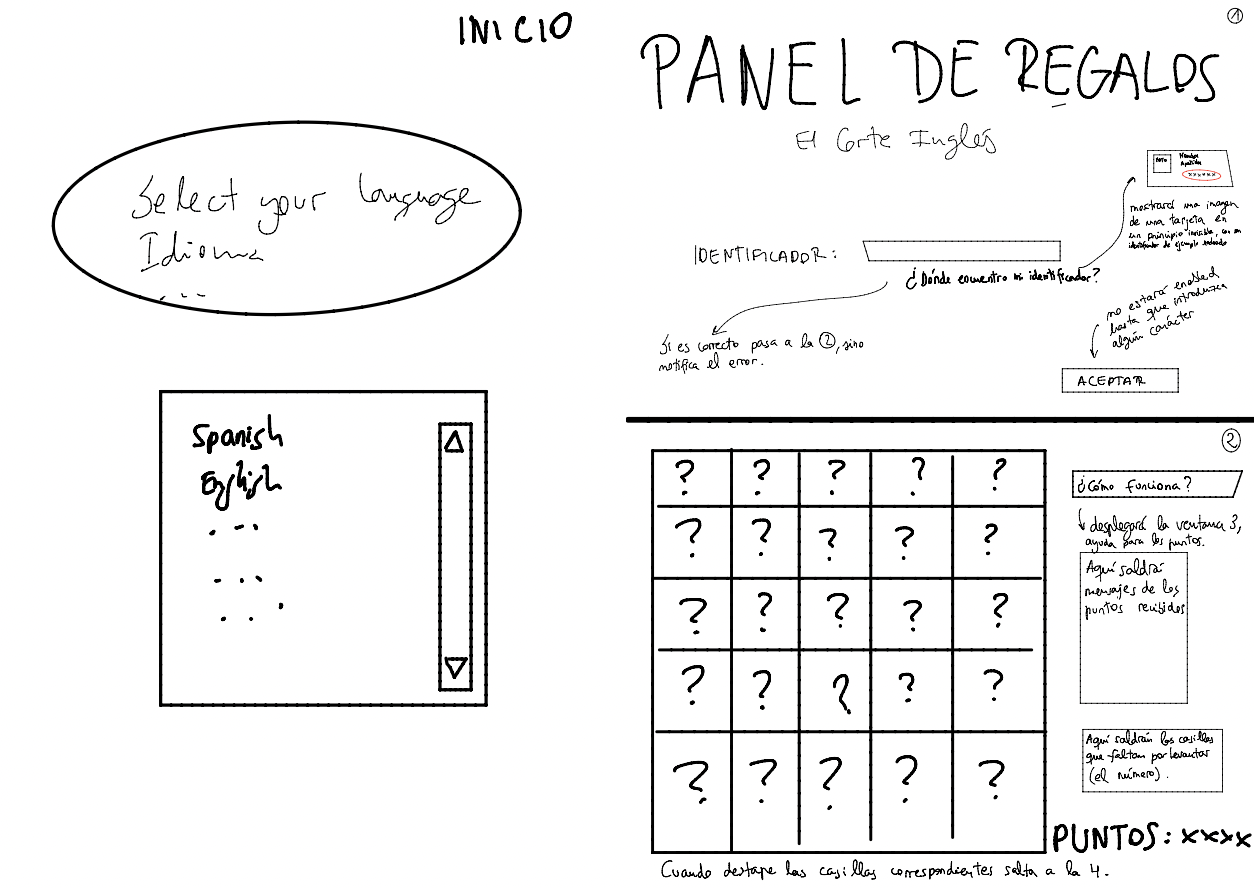 INICIO
Select your language
Idioma
...
Spanish
English
...
...
...
1
PANEL DE REGALOS
El Corte Inglés
FOTO
Nombre
Apellidos
xxxxxx
mostrará una imagen
de una tarjeta en
un principio invisible, con un
identificador de ejemplo rodeado
IDENTIFICADOR:
¿Dónde encuentro mi identificador?
no estará enabled
hasta que introduzca
algún carácter
Si es correcto pasa a la 2, sino
notifica el error.
ACEPTAR
2
? ? ? ? ?
? ? ? ? ?
? ? ? ? ?
? ? ? ? ?
? ? ? ? ?
¿Cómo funciona?
desplegará la ventana 3,
ayuda para los puntos.
Aquí saldrán
mensajes de los
puntos recibidos
Aquí saldrán las casillas
que faltan por levantar
(el número).
PUNTOS: xxxx
Cuando destape las casillas correspondientes salta a la 4.